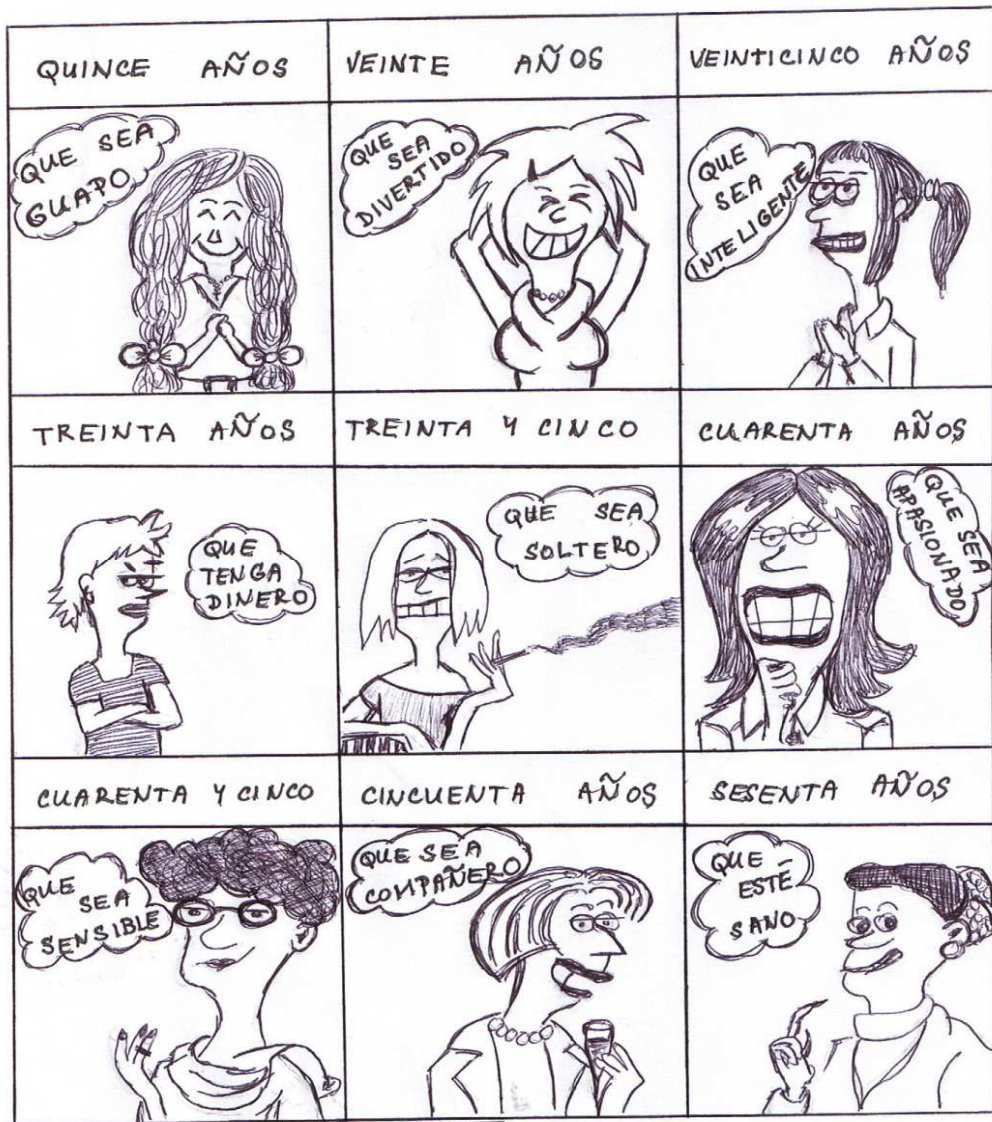 QUINCE AÑOS
QUE SEA
GUAPO
VEINTE AÑOS
QUE
SEA
DIVERTIDO
VEINTICINCO AÑOS
QUE
SEA
INTELIGENTE
TREINTA AÑOS
QUE
TENGA
DINERO
TREINTA Y CINCO
QUE SEA
SOLTERO
CUARENTA AÑOS
QUE SEA
APASIONADO
CUARENTA Y CINCO
QUE
SEA
SENSIBLE
CINCUENTA AÑOS
QUE SEA
COMPAÑERO
SESENTA AÑOS
QUE
ESTÉ
SANO